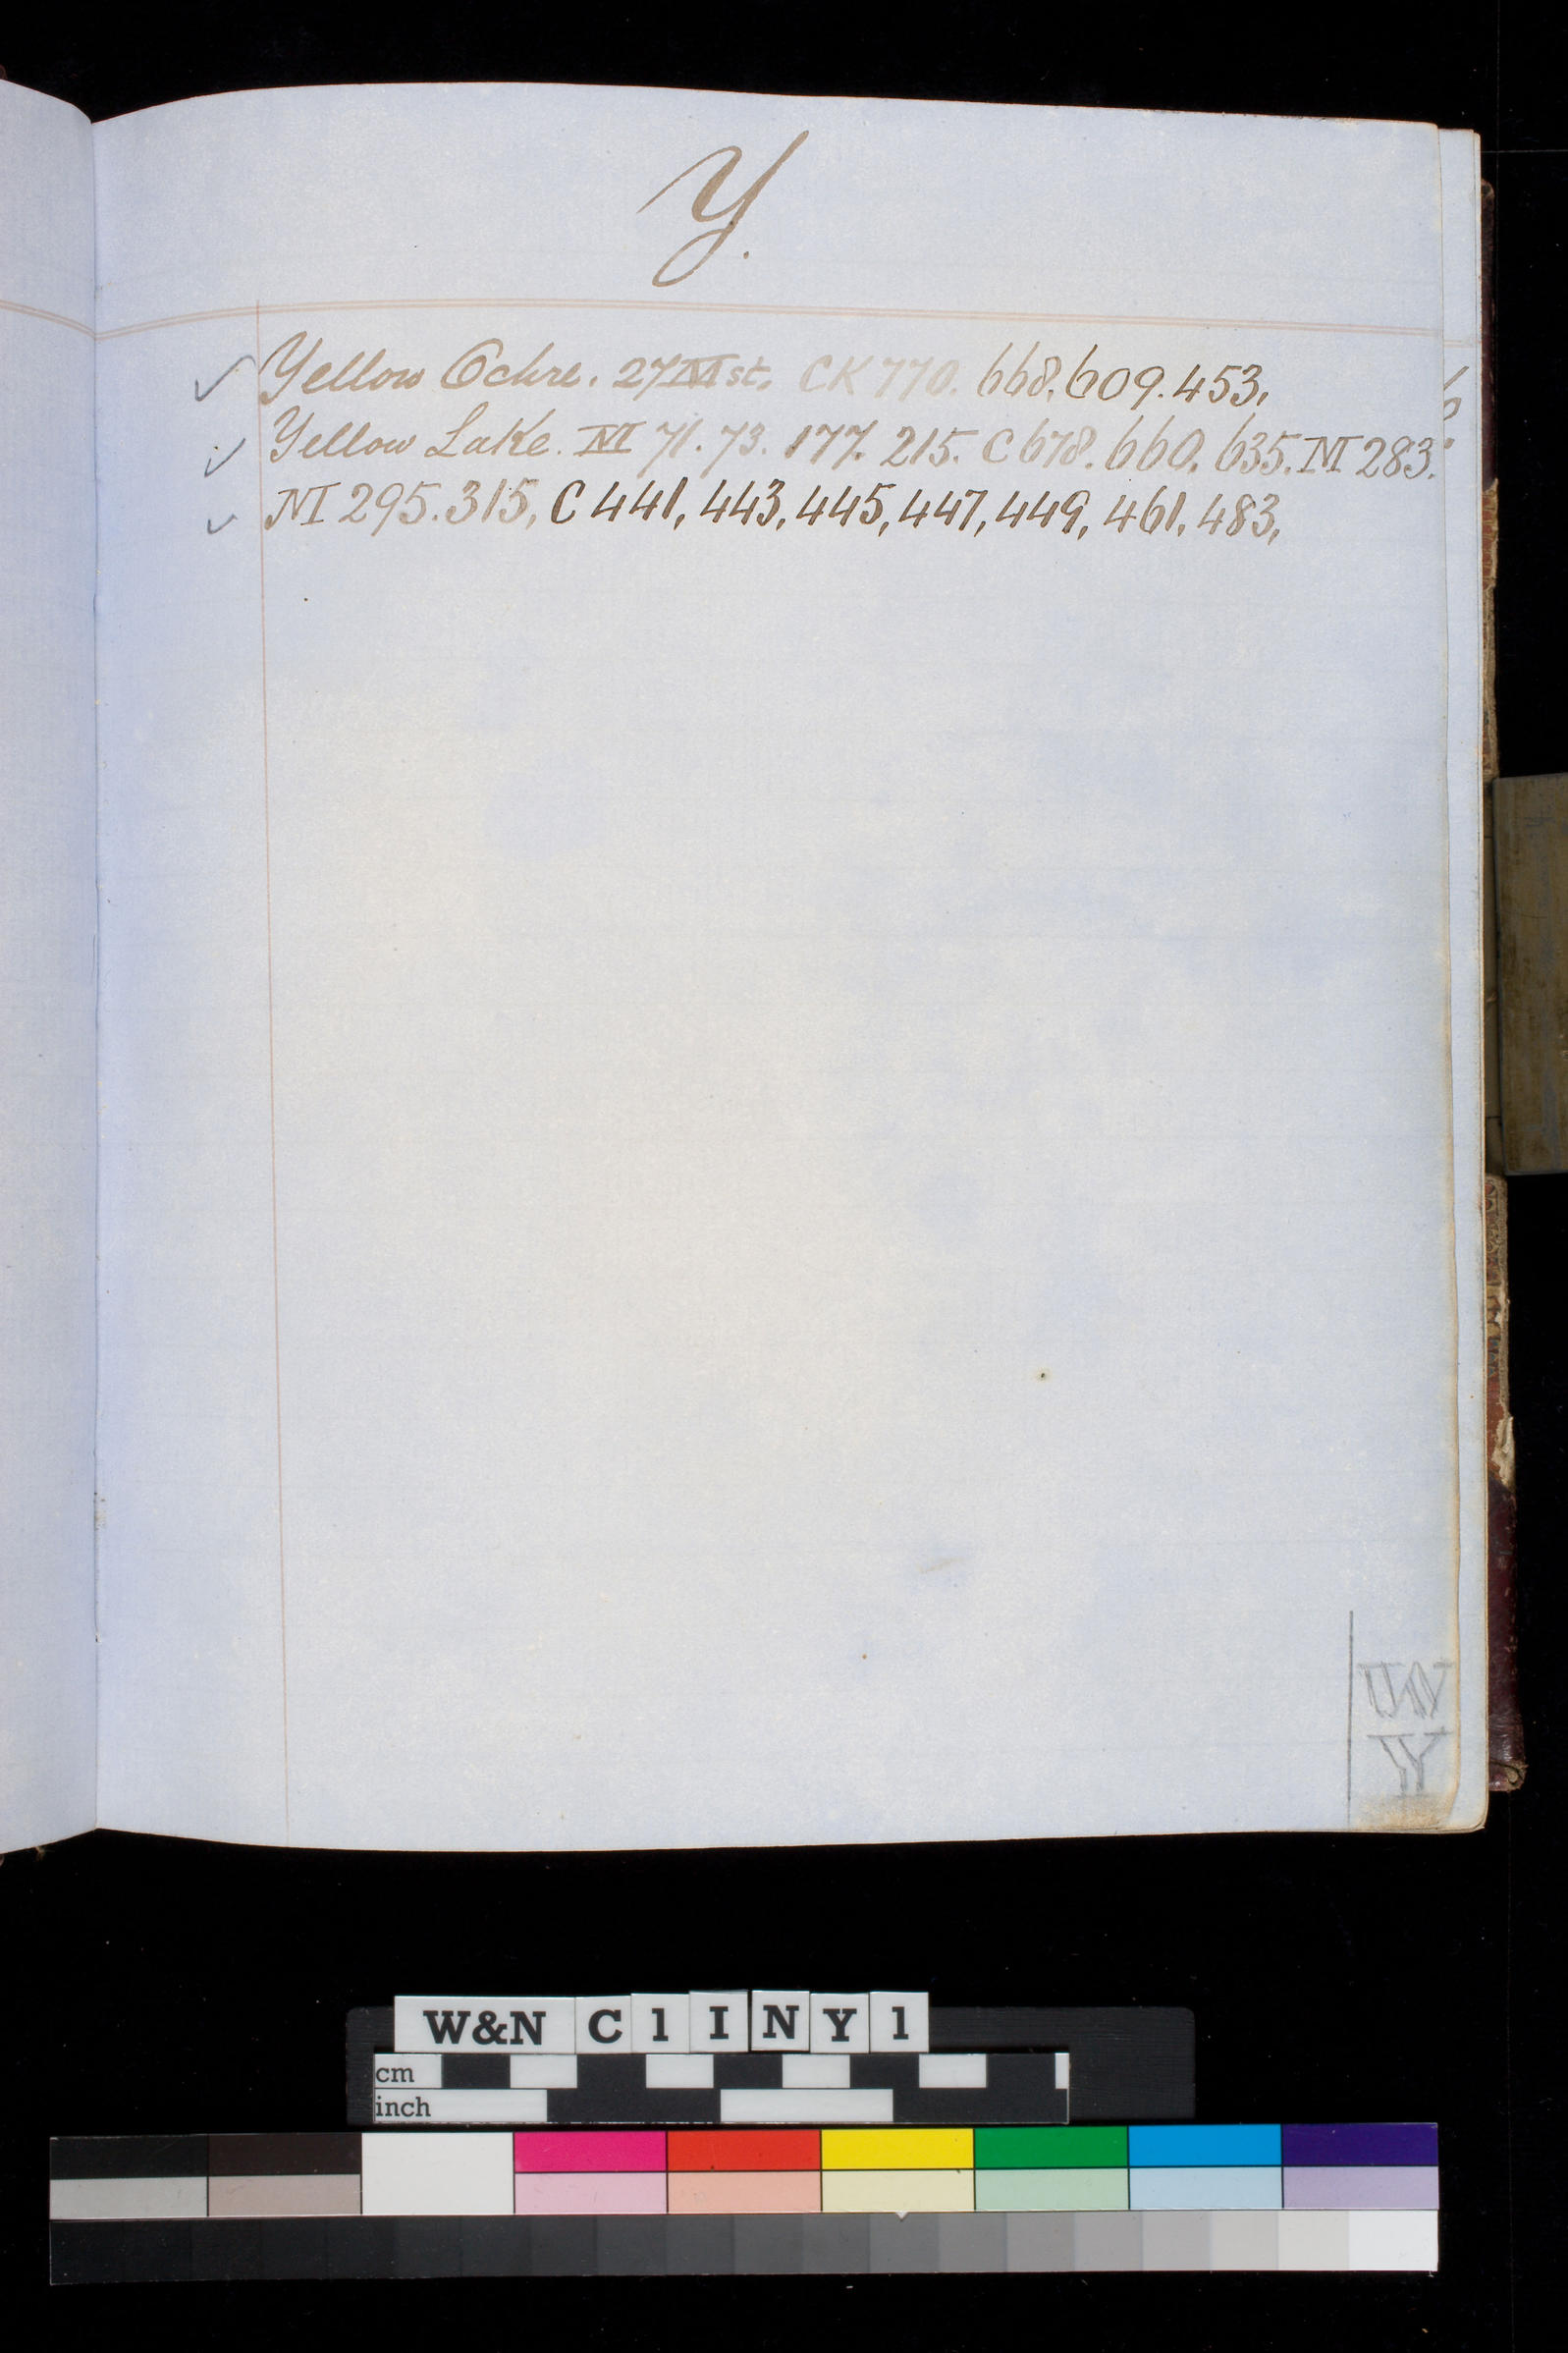 Y.
Yellow Ochre. 27 M st. CK 770. 668. 609. 453,
Yellow Lake. M 71. 73. 177. 215. C 678. 660. 635. M 283.
M 295. 315, C 441, 443, 445, 447, 449, 461, 483,
W&N C 1 I N Y 1
cm
inch